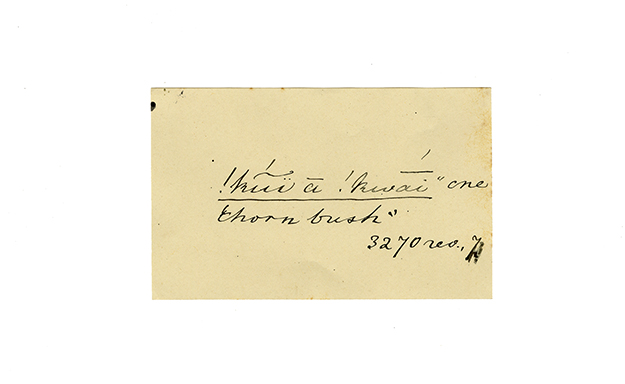 !kúĭ ā !kwāí "one
thorn bush"
3270 rev., 7